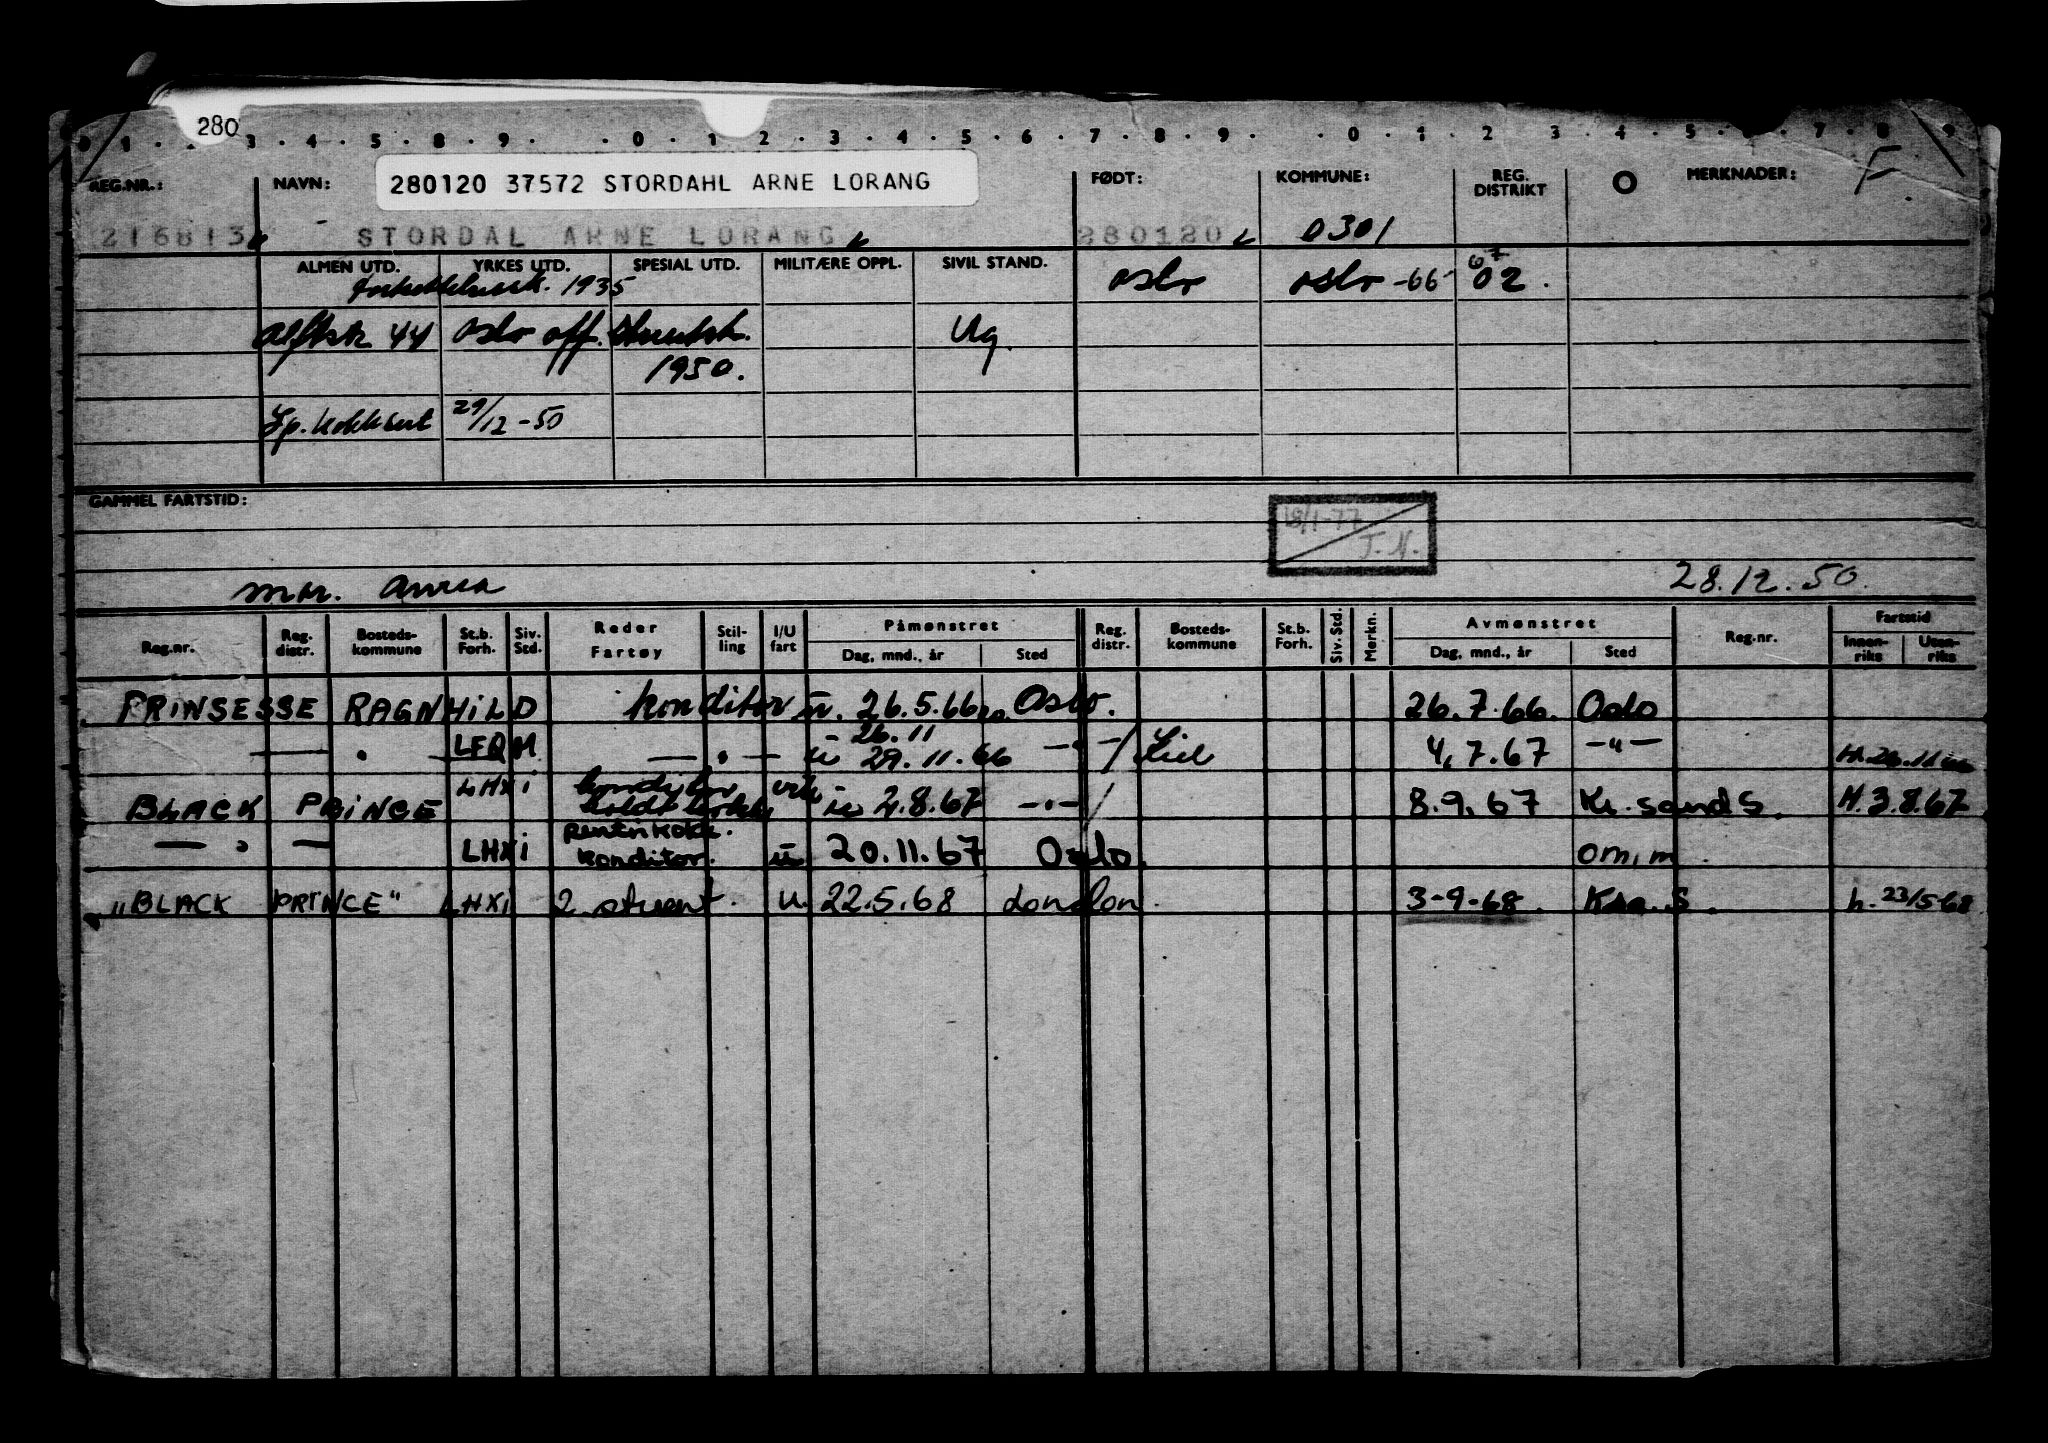 280
0 1 . 2 . 3 . 4 . 5 . 8 . 9 . . 0 . 1 . 2 . 3 . 4 . 5 . 6 . 7 . 8 . 9 . . 0 . 1 . 2 . 3 . 4 . 5 . 6 . 7 . 8 . 9
REG.NR.: NAVN: 280120 37572 STORDAHL ARNE LORANG FØDT: KOMMUNE: REG. DISTRIKT O MERKNADER: F
216813 STORDAL ARNE LORANG 280120 0301
ALMEN UTD. YRKES UTD. SPESIAL UTD. MILITÆRE OPPL. SIVIL STAND. Oslo Oslo -66 67 02.
1935
44 Oslo off. Ug.
1950.
29/12-50
GAMMEL FARTSTID:
18/1-77
J.N.
28.12.50.
Reg.nr. Reg. distr. Bosteds-kommune St.b. Forh. Siv. Std. Reder Fartøy Stil-ling I/U fart Påmønstret Dag, mnd., år Sted Reg. distr. Bosteds-kommune St.b. Forh. Siv. Std. Merkn. Avmønstret Dag, mnd., år Sted Reg.nr. Fartstid Innen-riks Uten-riks
PRINSESSE RAGNHILD konditor u. 26.5.66 Oslo. 26.7.66. Oslo
— . — LEQM — . — u 26.11 29.11.66 — . — / 4.7.67 — " —
BLACK PRINCE LHXI u 2.8.67 — . — / 8.9.67 Kr. sand S. H. 3.8.67
— . — LHXI konditor. u 20.11.67 Oslo. om.m.
"BLACK PRINCE" LHXI 2. stuert. u. 22.5.68 London. 3-9-68. S. h. 23/5-68